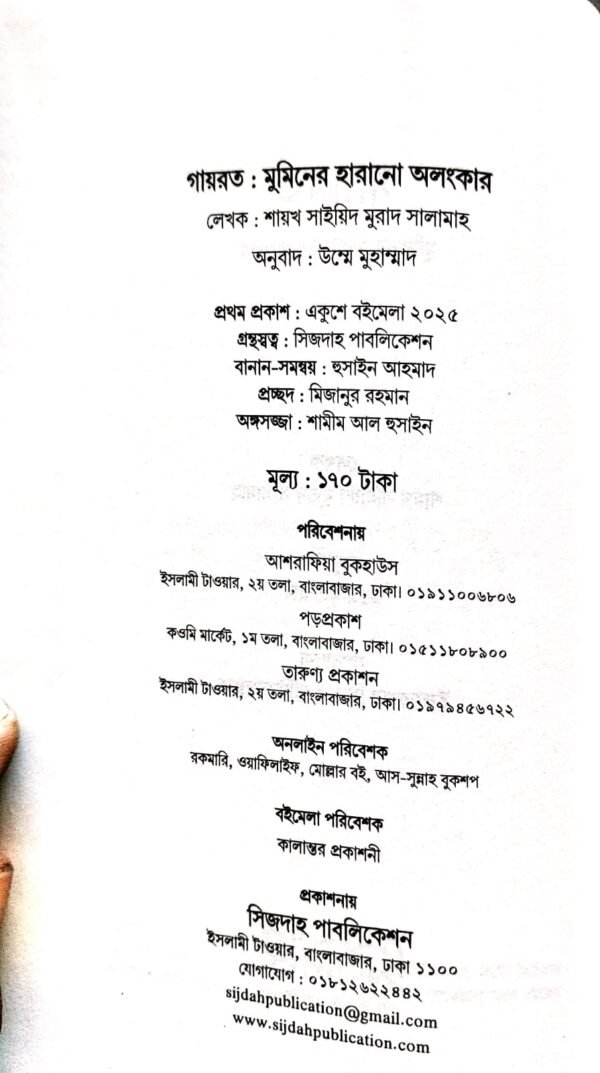 গায়রত : মুমিনের হারানো অলংকার
লেখক : শায়খ সাইয়িদ মুরাদ সালামাহ
অনুবাদ : উম্মে মুহাম্মাদ
প্রথম প্রকাশ : একুশে বইমেলা ২০২৫
গ্রন্থস্বত্ব : সিজদাহ পাবলিকেশন
বানান-সমন্বয় : হুসাইন আহমাদ
প্রচ্ছদ : মিজানুর রহমান
অঙ্গসজ্জা : শামীম আল হুসাইন
মূল্য : ১৭০ টাকা
পরিবেশনায়
আশরাফিয়া বুকহাউস
ইসলামী টাওয়ার, ২য় তলা, বাংলাবাজার, ঢাকা। ০১৯১১০০৬৮০৬
পড়প্রকাশ
কওমি মার্কেট, ১ম তলা, বাংলাবাজার, ঢাকা। ০১৫১১৮০৮৯০০
তারুণ্য প্রকাশন
ইসলামী টাওয়ার, ২য় তলা, বাংলাবাজার, ঢাকা। ০১৯৭৯৪৫৬৭২২
অনলাইন পরিবেশক
রকমারি, ওয়াফিলাইফ, মোল্লার বই, আস-সুন্নাহ বুকশপ
বইমেলা পরিবেশক
কালান্তর প্রকাশনী
প্রকাশনায়
সিজদাহ পাবলিকেশন
ইসলামী টাওয়ার, বাংলাবাজার, ঢাকা ১১০০
যোগাযোগ : ০১৮১২৬২২৪৪২
sijdahpublication@gmail.com
www.sijdahpublication.com